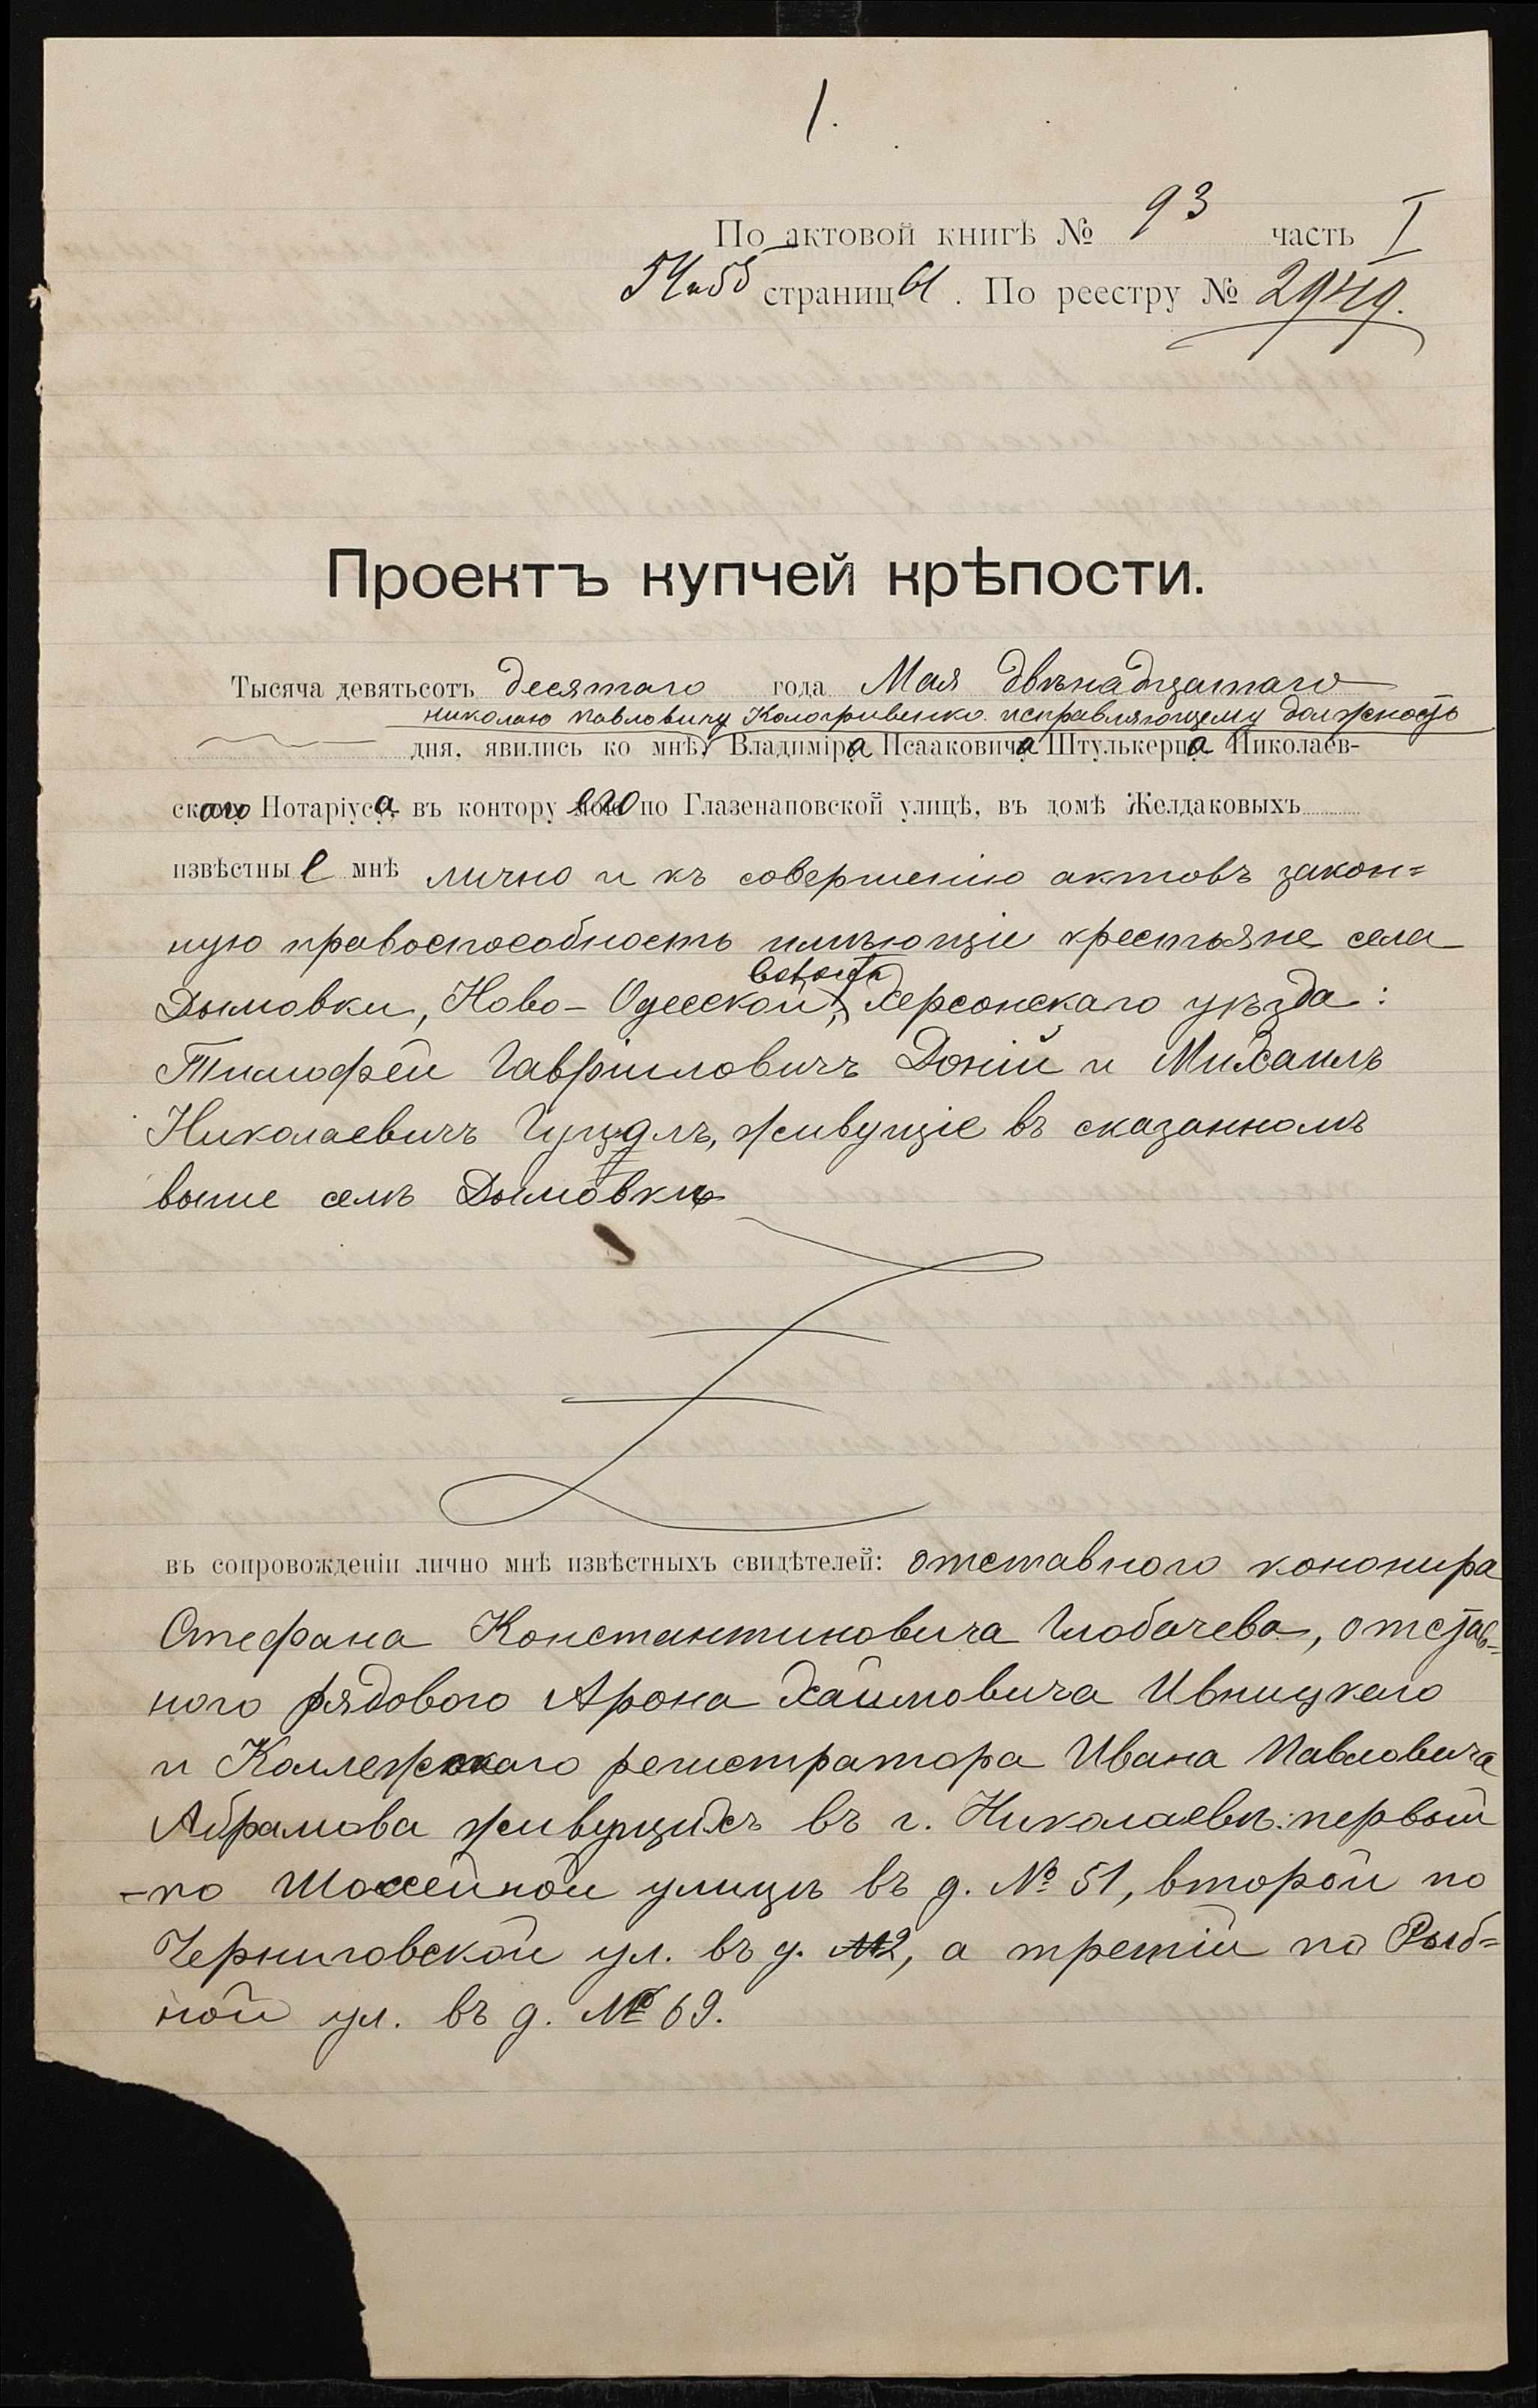 1.
По актовой книгѣ № 93 часть I
54 и 55 страницы. По реестру № 2949.
Проектъ купчей крѣпости.
Тысяча девятьсотъ десятаго года Мая двѣнадцатаго
Николаю Павловичу Кологривенко исправляющему должность
дня, явились ко мнѣ, Владиміра Исааковича Штулькерца Николаев-
скаго Нотаріуса, въ контору его по Глазенаповской улицѣ, въ домѣ Желдаковыхъ
извѣстные мнѣ лично и къ совершенію актовъ закон=
ную правоспособность имѣющіе крестьяне села
волости
Дымовки, Ново-Одесской, Херсонскаго уѣзда:
Тимофей Гавріиловичъ Доній и Михаилъ
Николаевичъ живущіе въ сказанномъ
выше селѣ Дымовкѣ
въ сопровожденіи лично мнѣ извѣстныхъ свидѣтелей: отставного кононира
Стефана Константиновича Глобачева, отстав=
ного рядового Арона Хаимовича Ивницкаго
и Коллежскаго регистратора Ивана Павловича
Абрамова живущихъ въ г. Николаевѣ: первый
-по Шоссейной улицѣ въ д. № 51, второй по
Черниговской ул. въ д. №2, а третій по Рыб=
ной ул. въ д. № 69.